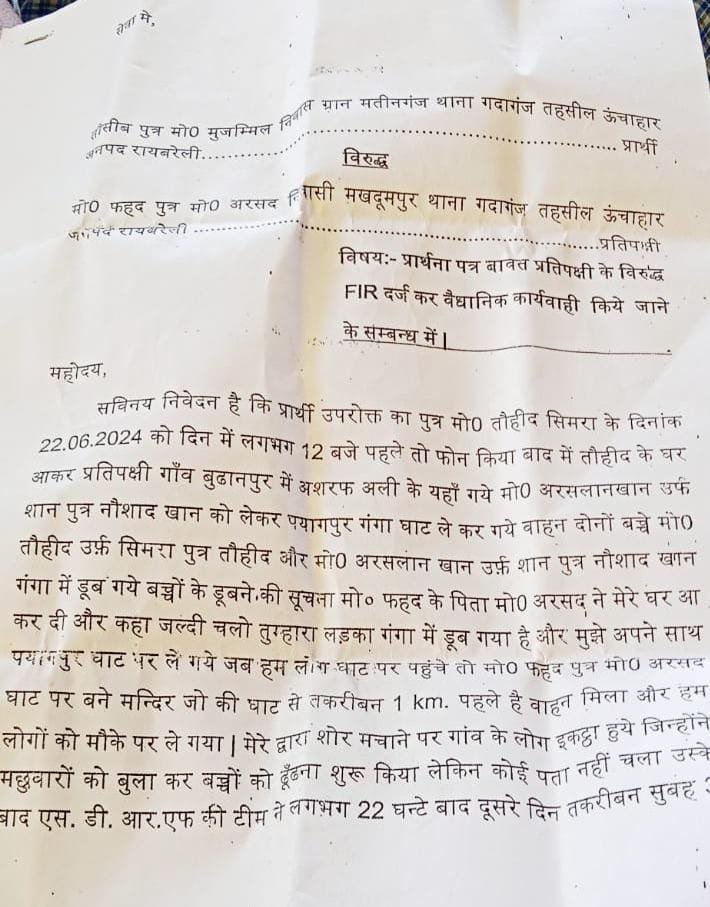 सेवा मे,
तौसीब पुत्र मो0 मुजम्मिल निवास ग्रान मतीनगंज थाना गदागंज तहसील ऊंचाहार
जनपद रायबरेली.......................................................... प्रार्थी
विरुद्ध
मो0 फहद पुत्र मो0 अरसद निवासी मखदूमपुर थाना गदागंज तहसील ऊंचाहार
जनपद रायबरेली ..........................................................प्रतिपक्षी
विषय:- प्रार्थना पत्र बावत प्रतिपक्षी के विरुद्ध
FIR दर्ज कर वैधानिक कार्यवाही किये जाने
के सम्बन्ध में|
महोदय,
सविनय निवेदन है कि प्रार्थी उपरोक्त का पुत्र मो0 तौहीद सिमरा के दिनांक
22.06.2024 को दिन में लगभग 12 बजे पहले तो फोन किया बाद में तौहीद के घर
आकर प्रतिपक्षी गाँव बुढानपुर में अशरफ अली के यहाँ गये मो0 अरसलानखान उर्फ
शान पुत्र नौशाद खान को लेकर पयागपुर गंगा घाट ले कर गये वाहन दोनों बच्चे मो0
तौहीद उर्फ़ सिमरा पुत्र तौहीद और मो0 अरसलान खान उर्फ़ शान पुत्र नौशाद खान
गंगा में डूब गये बच्चों के डूबने की सूचना मो० फहद के पिता मो0 अरसद ने मेरे घर आ
कर दी और कहा जल्दी चलो तुम्हारा लड़का गंगा में डूब गया है और मुझे अपने साथ
पयागपुर घाट पर ले गये जब हम लोग घाट पर पहुंचे तो मो0 फहद पुत्र मो0 अरसद
घाट पर बने मन्दिर जो की घाट से तकरीबन 1 km. पहले है वाहन मिला और हम
लोगों को मौके पर ले गया | मेरे द्वारा शोर मचाने पर गांव के लोग इकट्ठा हुये जिन्होंने
मछुवारों को बुला कर बच्चों को ढूँढना शुरू किया लेकिन कोई पता नहीं चला उस्के
बाद एस. डी. आर.एफ की टीम ने लगभग 22 घन्टे बाद दूसरे दिन तकरीबन सुबह